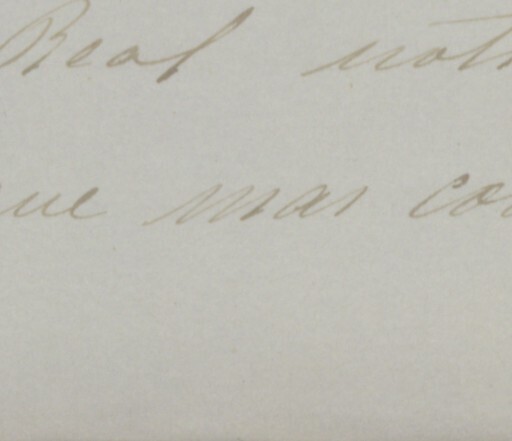 Real not
ue mas co